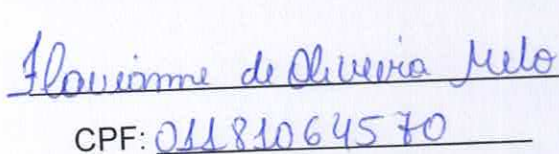 Flavianne de Oliveira Melo
CPF: 01181064570